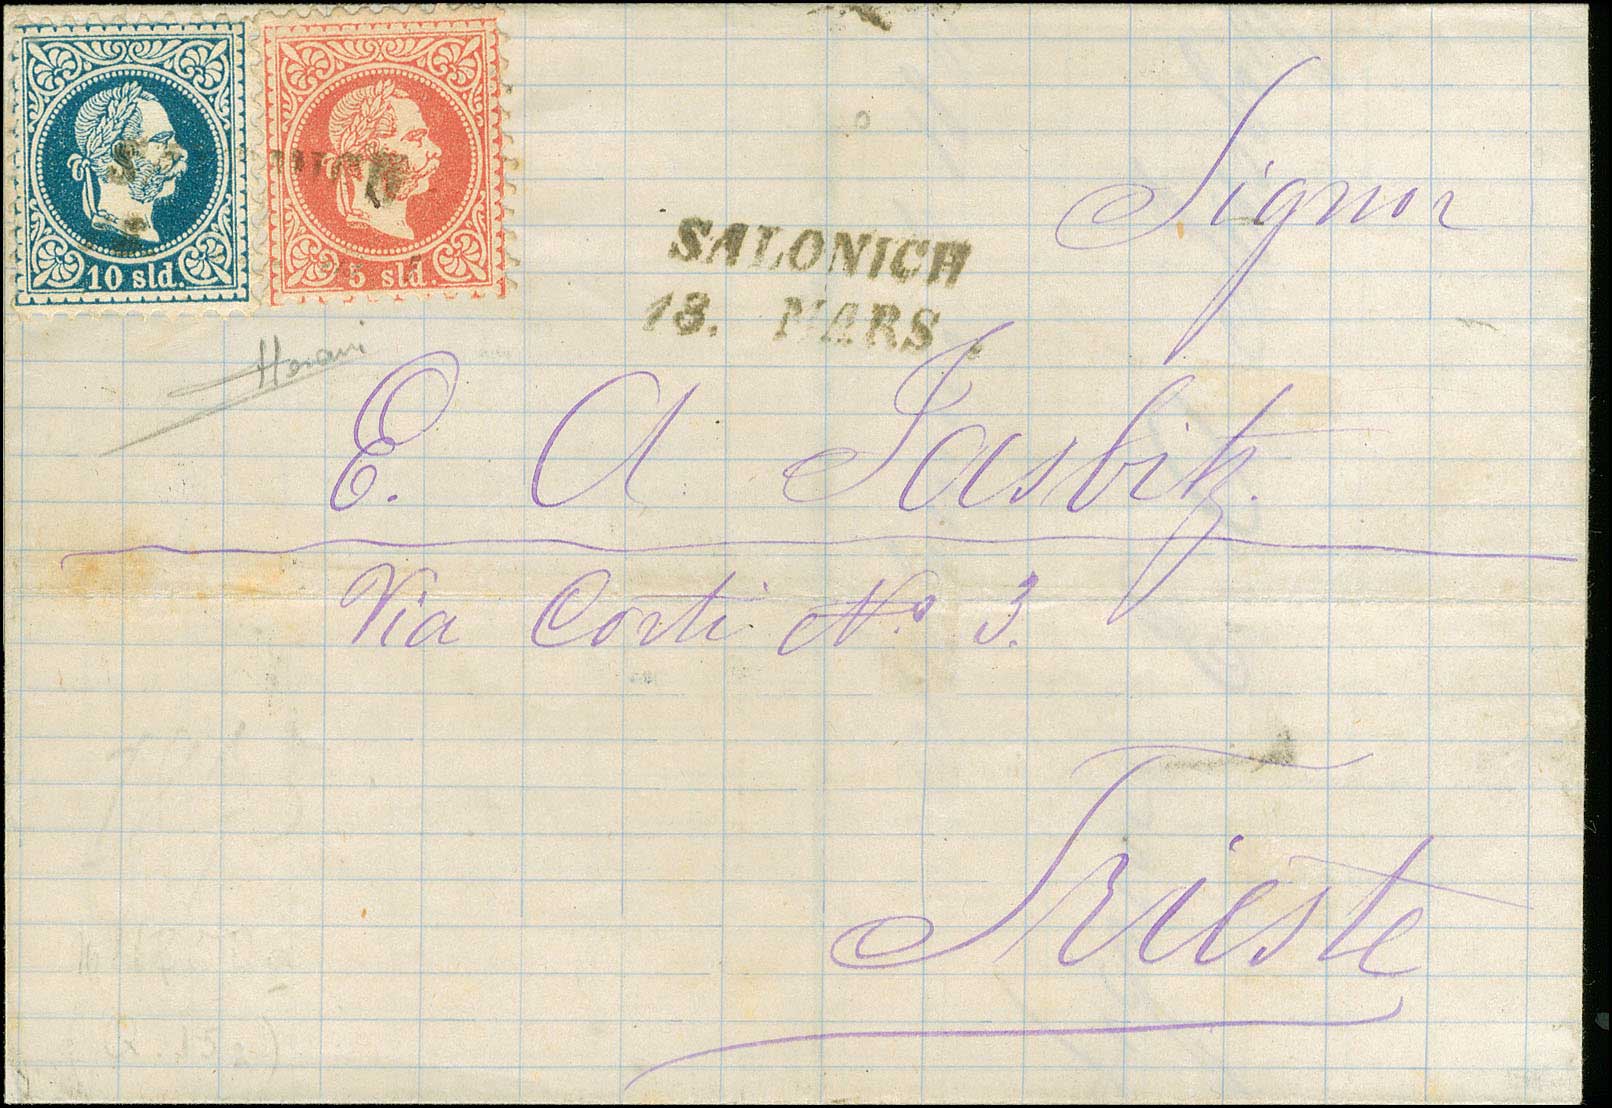 10 sld.
5 sld.
SALONICH
13. MARS
Signor
E. A. Jasbitz.
Via Corti No 3.
Trieste